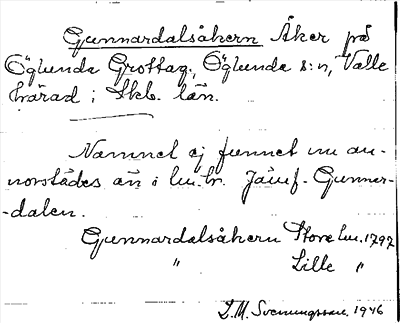 Gunnardalsåkern Åker på
Öglunda Grottag., Öglunda s:n, Valle
härad i Skb. län.
Namnet ej funnet nu an-
norstädes än i lm. hr. Jämf. Gunnar-
-dalen.
Gunnardalsåkern Stora lm. 1797
" Lille "
D.M. Svenningsson. 1946